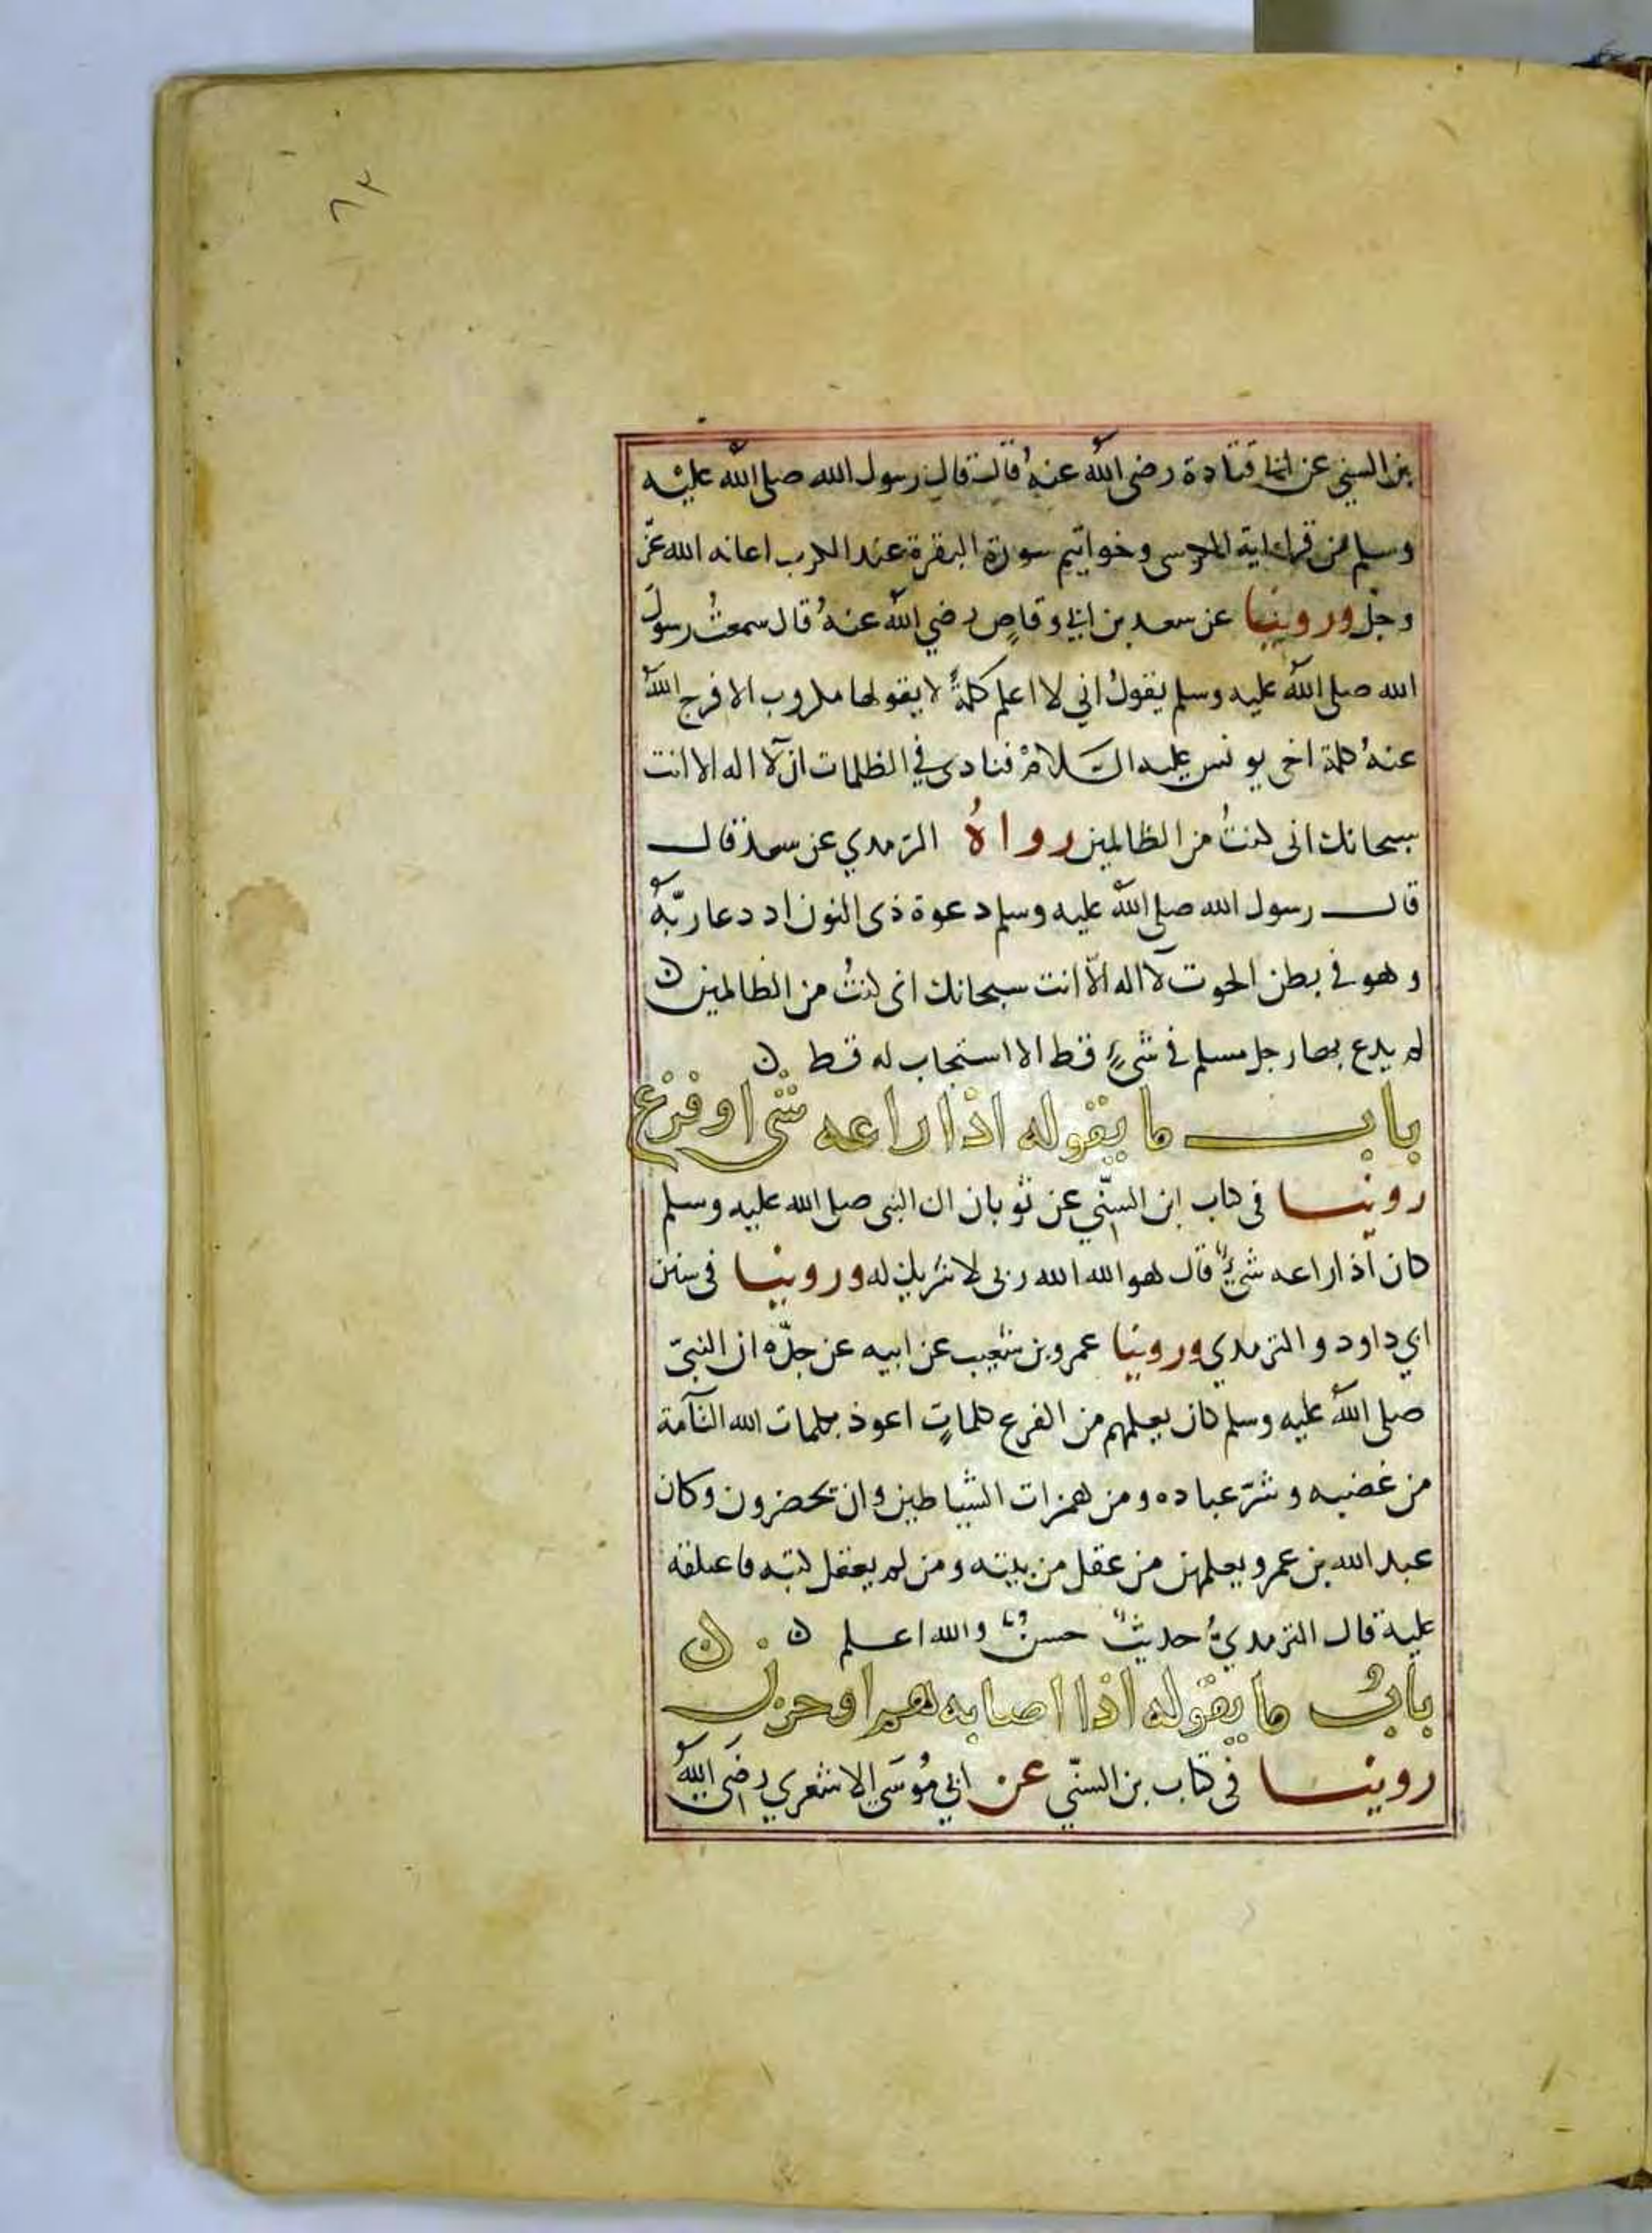 ٨٣
بن السني عن ابي قتادة رضي الله عنهُ قال قال رسول الله صلى الله عليه
وسلم من قرا اية الكرسي وخواتيم سورة البقرة عند الكرب اعانه الله عزّ
وجلّ وروينا عن سعد بن ابي وقاصٍ رضي الله عنهُ قال سمعتُ رسولَ
الله صلى الله عليه وسلم يقولُ اني لا اعلم كلمةً لا يقولها مكروب الا فرج الله
عنهُ كلمة اخي يونس عليه السلامُ فنادى في الظلمات ان لآ اله الا انت
سبحانك اني كنتُ من الظالمين رواهُ الترمدي عن سعد قال
قال رسول الله صلى الله عليه وسلم دعوة ذى النون اد دعا ربّهُ
وهو في بطن الحوت لآ اله الّا انت سبحانك انى كنتُ من الظالمين ن
لم يدع بها رجل مسلم في شيءٍ قط الا استجاب له قط ن
باب ما يقوله اذا راعه شى او فزع
روينا فى كتاب ابن السنّي عن ثوبان ان النبى صلى الله عليه وسلم
كان اذا راعه شيءٌ قال هو الله الله ربى لا شريك له وروينا فى سنن
ابي داود والترمدي وروينا عمرو بن شعيب عن ابيه عن جدّه ان النبىّ
صلى الله عليه وسلم كان يعلمهم من الفزع كلماتٍ اعوذ بكلمات الله التآمة
من غضبه وشرّ عباده ومن همزات الشياطين وان يحضرون وكان
عبد الله بن عمرو يعلمهن من عقل من بنيه ومن لم يعقل كتبه فاعلقه
عليه قال الترمديُّ حديثٌ حسنٌ والله اعلم ن ن
بابُ ما يقوله اذا اصابه هم او حزن
روينا فى كتاب بن السنّي عن ابي مُوسَى الاشعري رضَى اللهُ